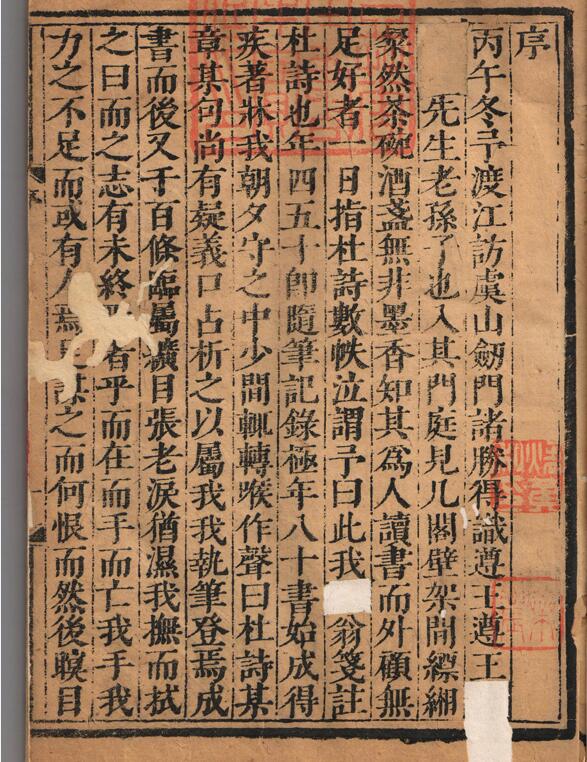 序
丙午冬予渡江訪虞山劒門諸勝得識遵王遵王
先生老孫子也入其門庭見几閣壁架間縹緗
粲然茶碗酒盞無非墨香知其爲人讀書而外顧無
足好者一日指杜詩數帙泣謂予曰此我 翁箋註
杜詩也年四五十即隨筆記錄極年八十書始成得
疾著牀我朝夕守之中少間輒轉喉作聲曰杜詩某
章某句尚有疑義口占析之以屬我我執筆登焉成
書而後又千百條臨屬纊目張老淚猶濕我撫而拭
之曰而之志有未終 者乎而在而手而亡我手我
力之不足而或有人焉 謀之而何恨而然後瞑目